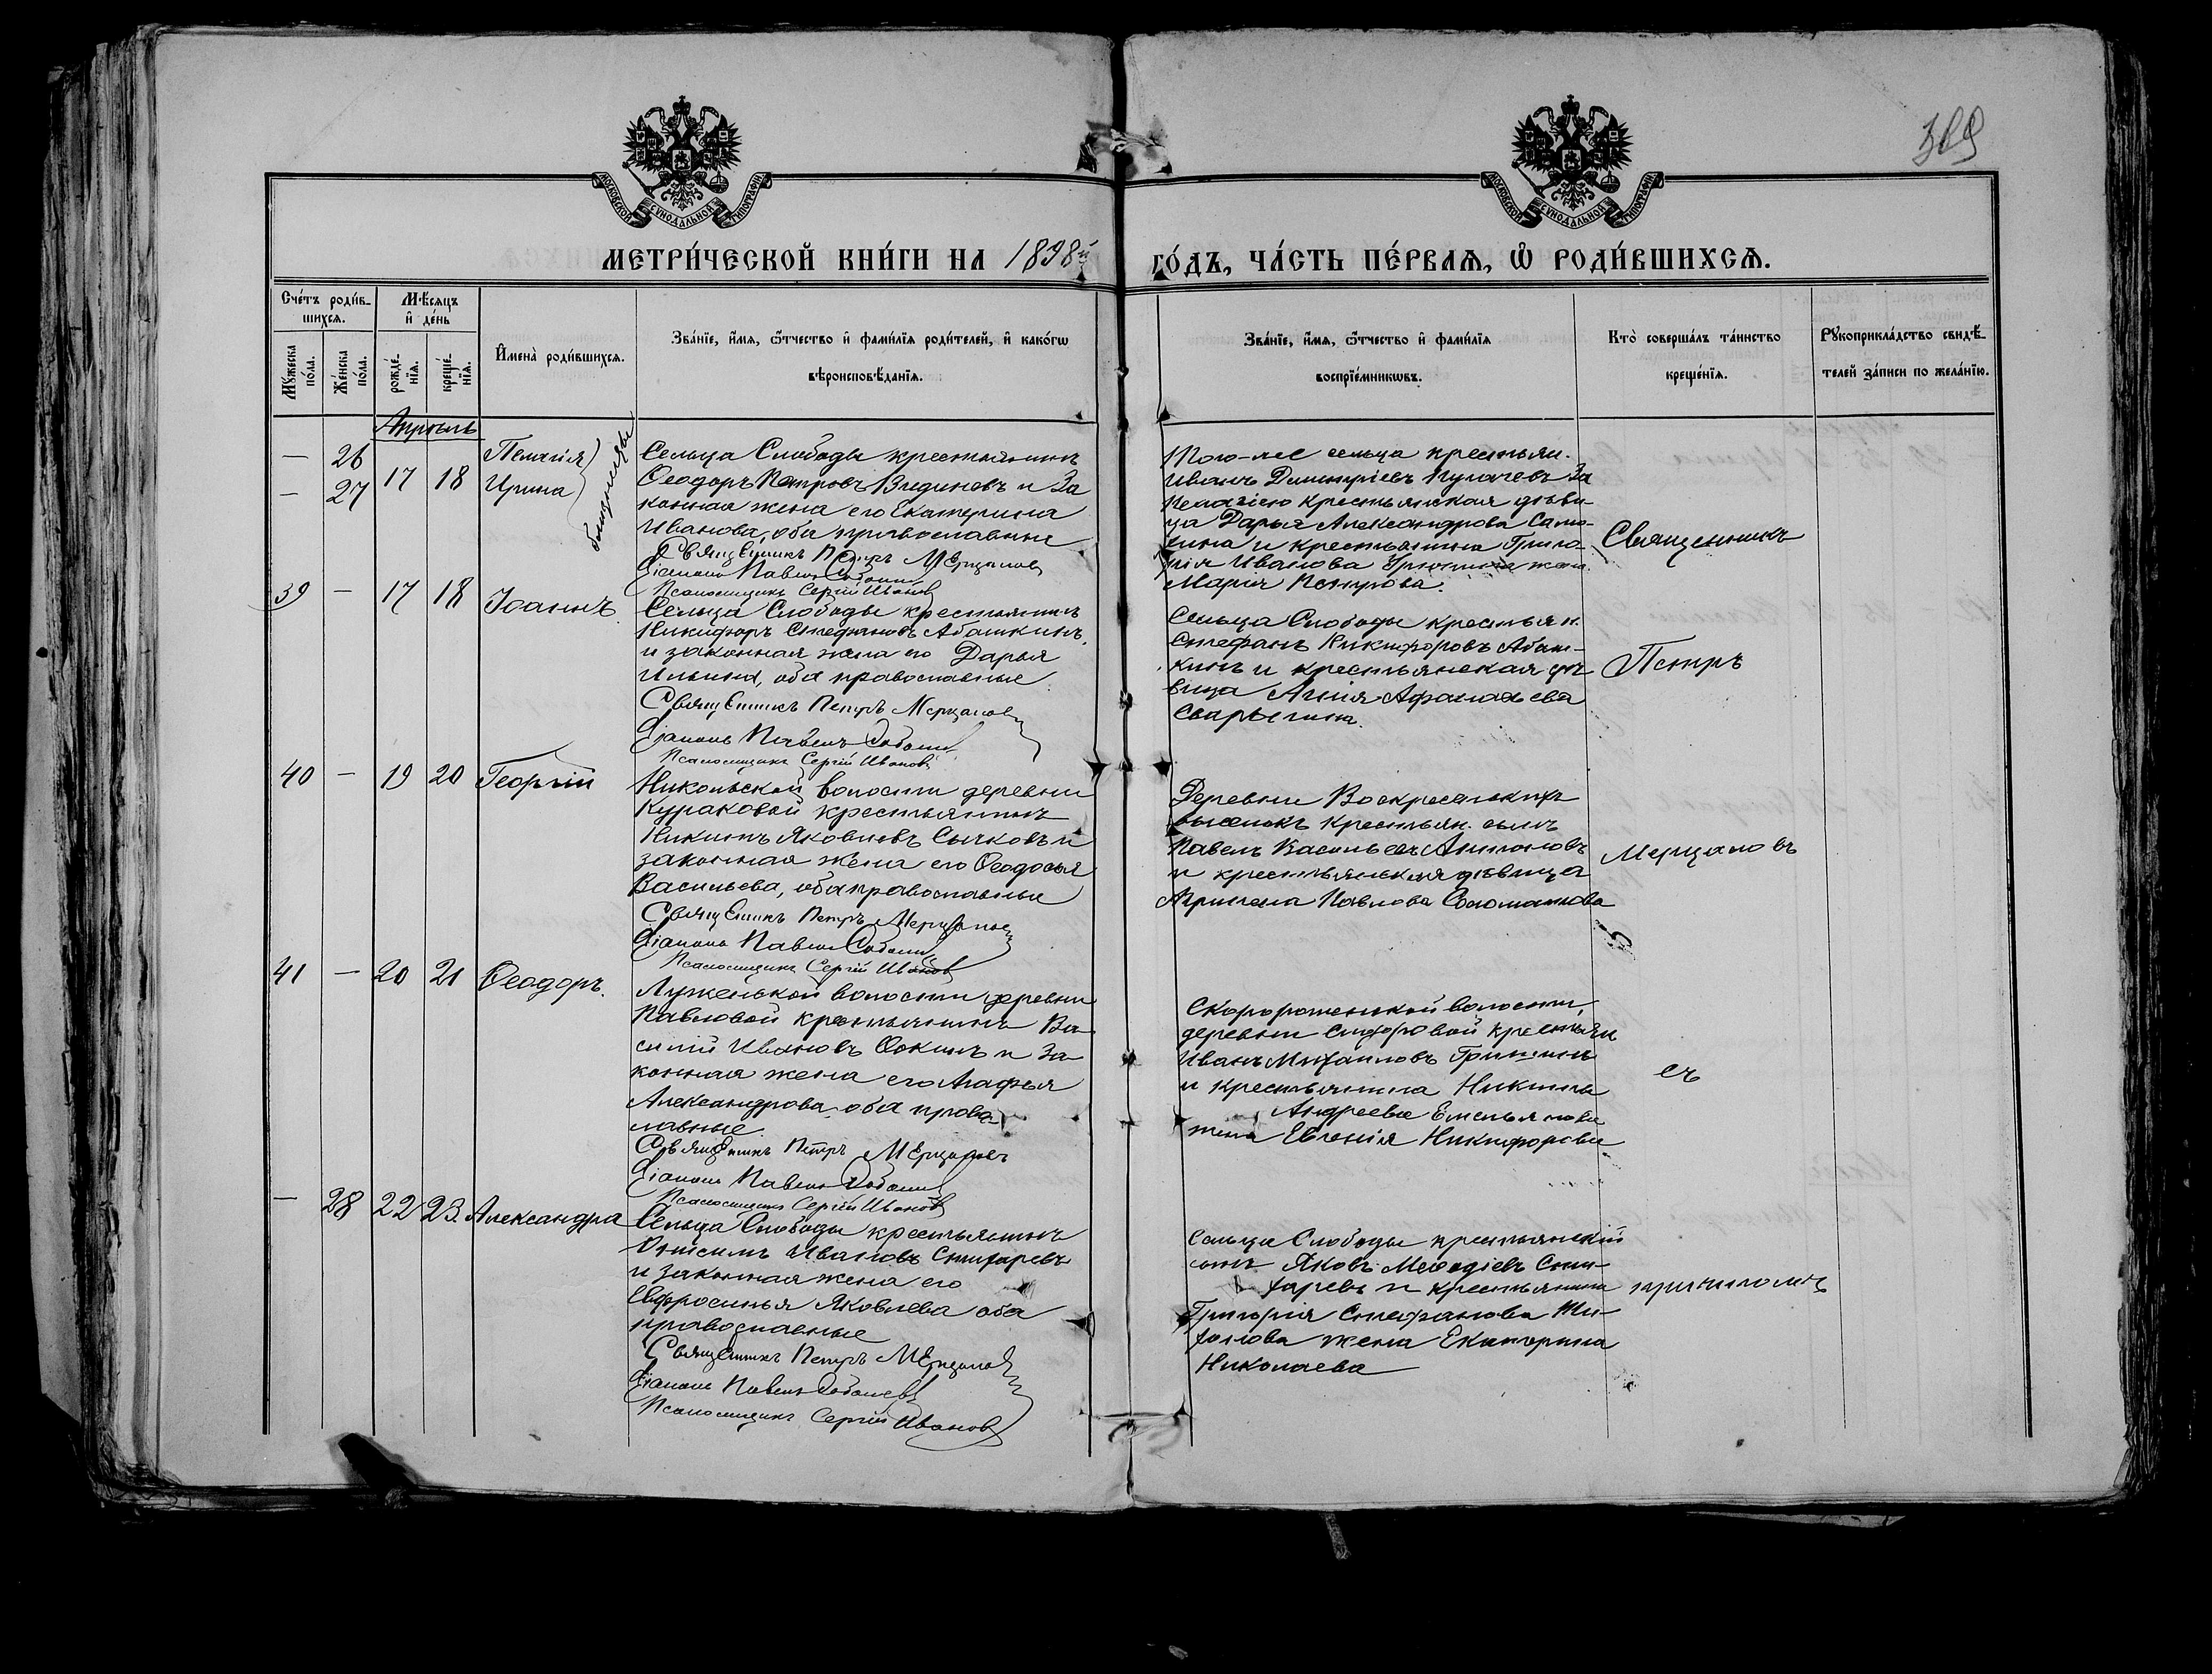 369
МОСКОВСКОЙ СУНОДАЛЬНОЙ ТИПОГРАФІИ
МОСКОВСКОЙ СУНОДАЛЬНОЙ ТИПОГРАФІИ
МЕТРИ́ЧЕСКОЙ КНИ́ГИ НА 1898й
ГО́ДЪ, ЧА́СТЬ ПЕ́РВАѦ, Ѡ҆ РОДИ́ВШИХСѦ.
Сче́тъ роди́в-
шихсѧ.
Мꙋ́жеска по́ла.
Же́нска по́ла.
Мѣ́сѧцъ
и҆ де́нь
рожде́-
нїѧ.
креще́-
нїѧ.
И҆мена̀ роди́вшихсѧ.
Зва́нїе, и҆́мѧ, ѻ҆́тчество и҆ фами́лїѧ роди́телей, и҆ како́гѡ
вѣроисповѣ́данїѧ.
Зва́нїе, и҆́мѧ, ѻ҆́тчество и҆ фами́лїѧ
воспрїе́мникѡвъ.
Кто̀ соверша́лъ та́инство
креще́нїѧ.
Рꙋкоприкла́дство свидѣ́-
телей за́писи по жела́нїю.
Апрѣль
— 26
— 27
17 18
Пелагія
Ирина
близнецы
Сельца Слободы крестьянинъ
Ѳеодоръ Петровъ и за
конная жена его Екатерина
Иванова, оба православные
Священникъ Петръ Мерцаловъ
Діаконъ Павелъ
Псаломщикъ Сергій Ивановъ
Того-же сельца крестьян.
Иванъ Димитріевъ Пугачевъ За
Пелагію крестьянская дѣви-
ца Дарья Александрова Само-
хина и крестьянина Григо-
рія Иванова жен.
Марія Петрова.
Священникъ
39 — 17 18 Іоаннъ
Сельца Слободы крестьянинъ
Никифоръ Стефановъ Абашкинъ
и законная жена его Дарья
Ильина, оба православные
Священникъ Петръ Мерцаловъ
Діаконъ Павелъ
Псаломщикъ Сергій Ивановъ
Сельца Слободы крестьян.
Стефанъ Никифоровъ Абаш-
кинъ и крестьянская дѣ
вица Анна Афанасьева
Петръ
40 — 19 20 Георгій
Никольской волости деревни
Кураковой крестьянинъ
Никита Яковлевъ Сычковъ и
законная жена его Ѳеодосья
Васильева, оба православные
Священникъ Петръ Мерцаловъ
Діаконъ Павелъ
Псаломщикъ Сергій Ивановъ
Деревни Воскресенскихъ
выселокъ крестьян. сынъ
Павелъ Васильевъ Антоновъ
и крестьянская дѣвица
Павлова Соломатова
Мерцаловъ
41 — 20 21 Ѳеодоръ.
Луженской волости деревни
Павловой крестьянинъ Ва
силій Ивановъ Ѳокинъ и за
конная жена его Агафья
Александрова оба правос
лавные
Священникъ Петръ Мерцаловъ
Діаконъ Павелъ
Псаломщикъ Сергій Ивановъ
волости,
деревни Сидоровой крестьян
Иванъ Михаиловъ Гришинъ
и крестьянина Никиты
Андреева Емельянова
жена Евгенія Никифорова
съ
— 28 22 23. Александра
Сельца Слободы крестьянинъ
Онисимъ Ивановъ Снитаревъ
и законная жена его
Евфросинья Яковлева оба
православные
Священникъ Петръ Мерцаловъ
Діаконъ Павелъ
Псаломщикъ Сергій Ивановъ
Сельца Слободы крестьянскій
сынъ Яковъ Меѳодіевъ Сни-
таревъ и крестьянина
Григорія Стефанова
жена Екатерина
Николаева
причтомъ